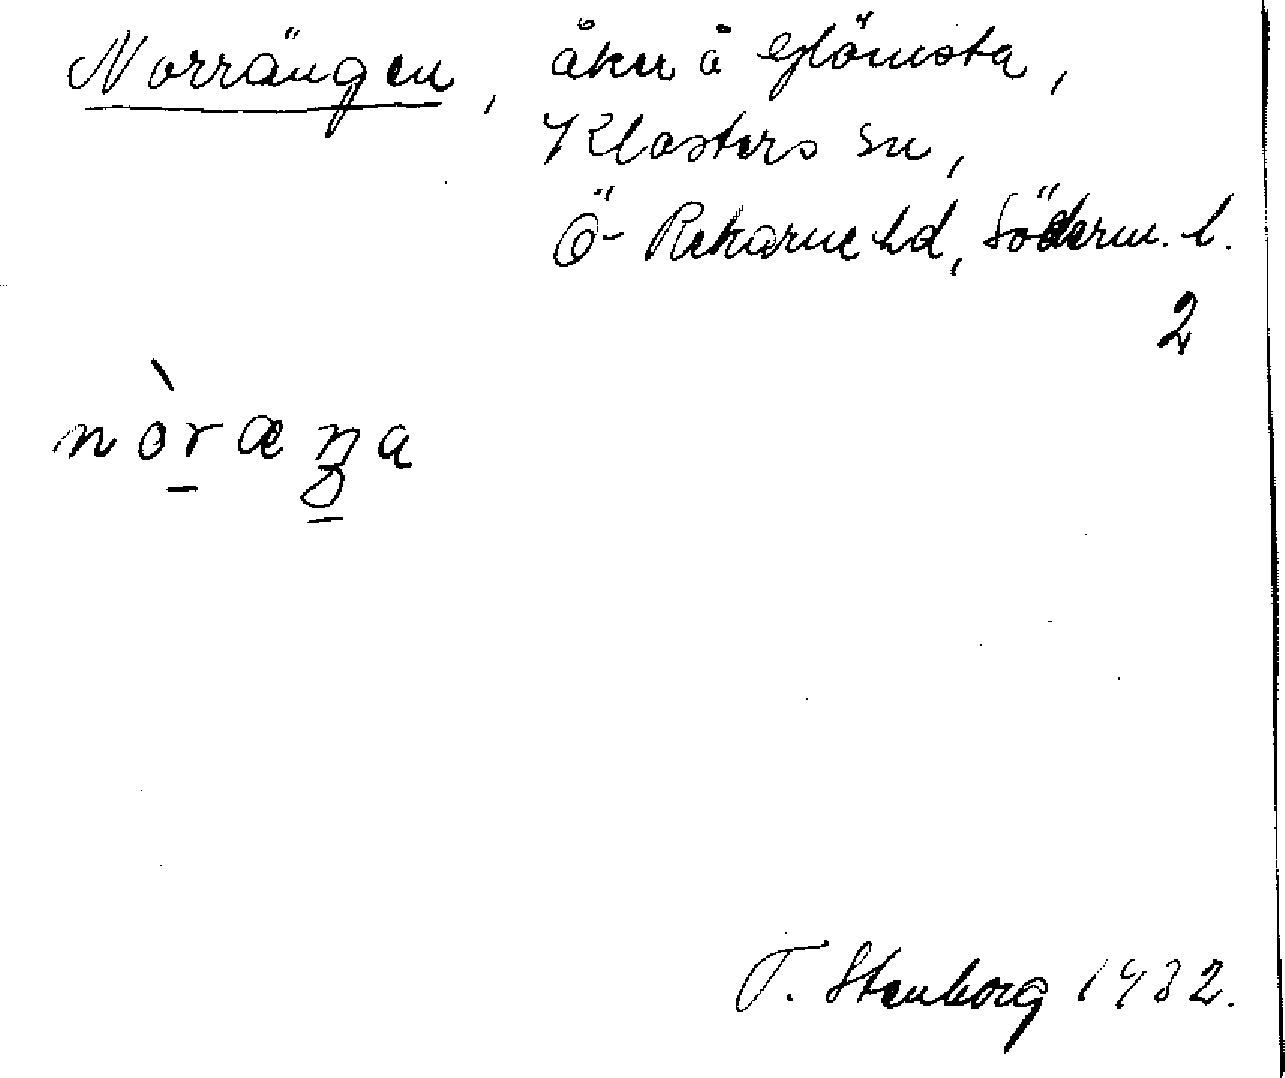 Norrängen, åker å Glömsta,
Klosters sn,
Ö- Rekarne hd, Söderm. l.
2
nòræŋa
T. Stenborg 1932.